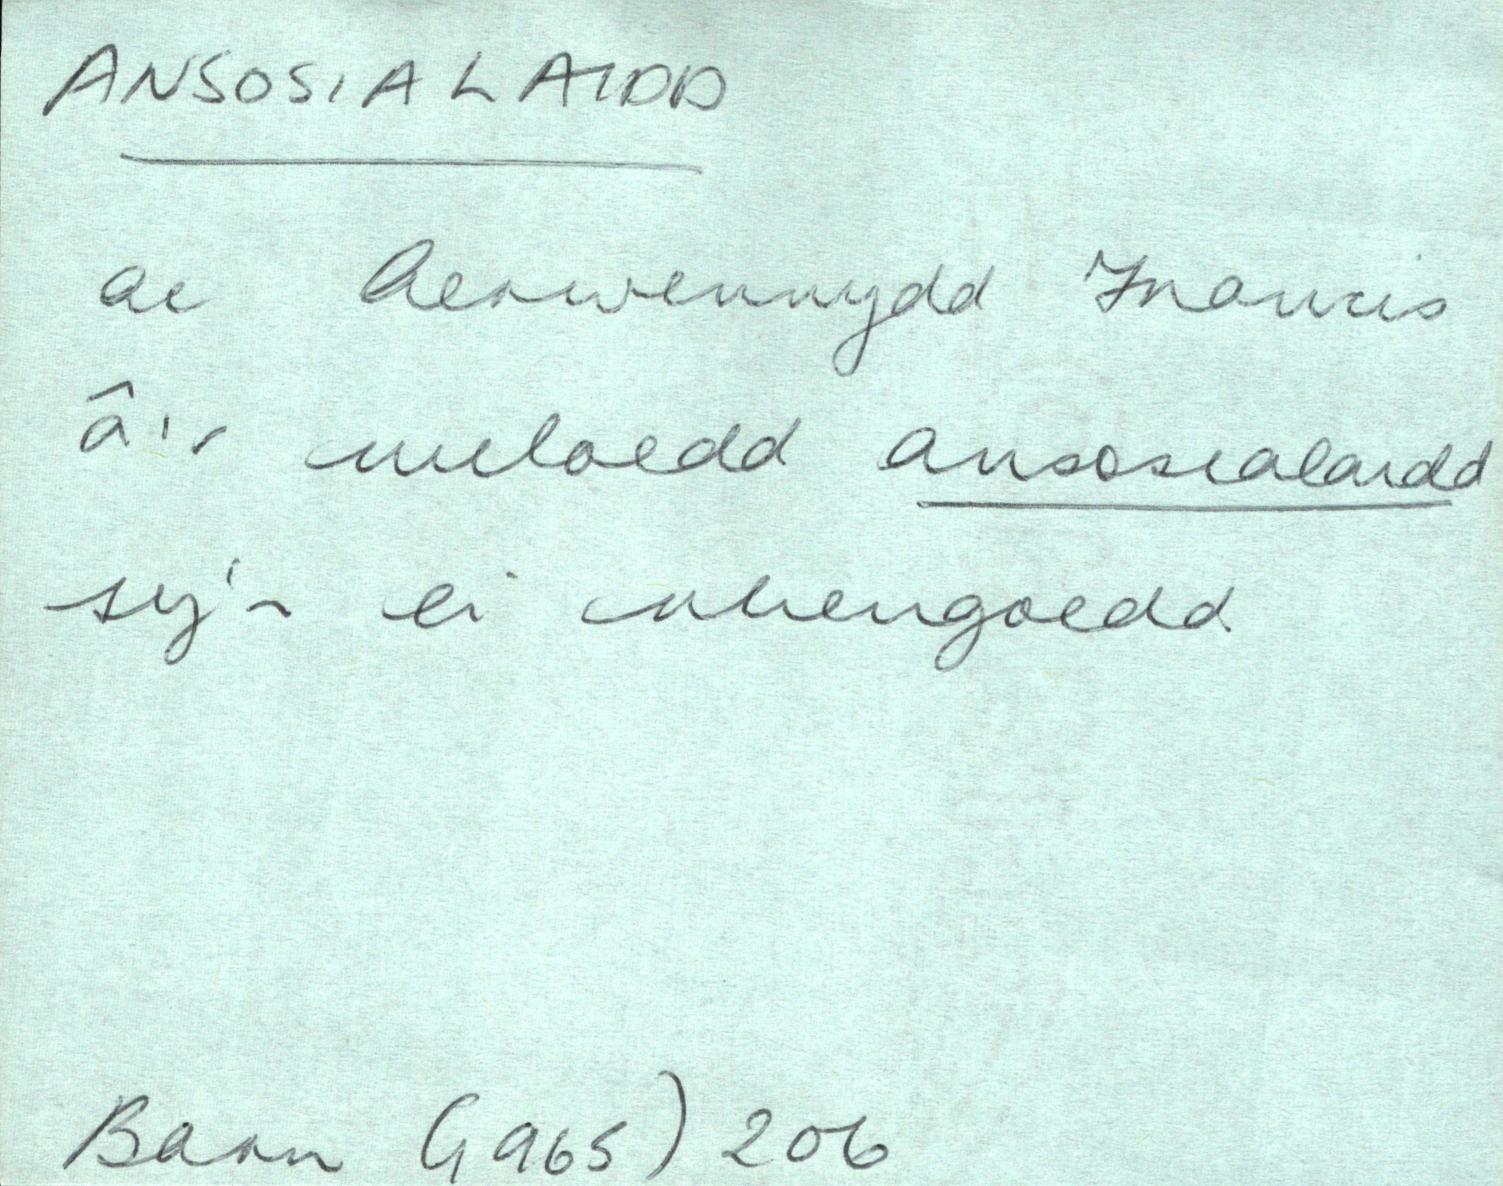 ANSOSIALAIDD
ac Aerwennydd Francis
â'r miloedd ansosialaidd
sy'n ei rhengoedd
Barn (1965) 206